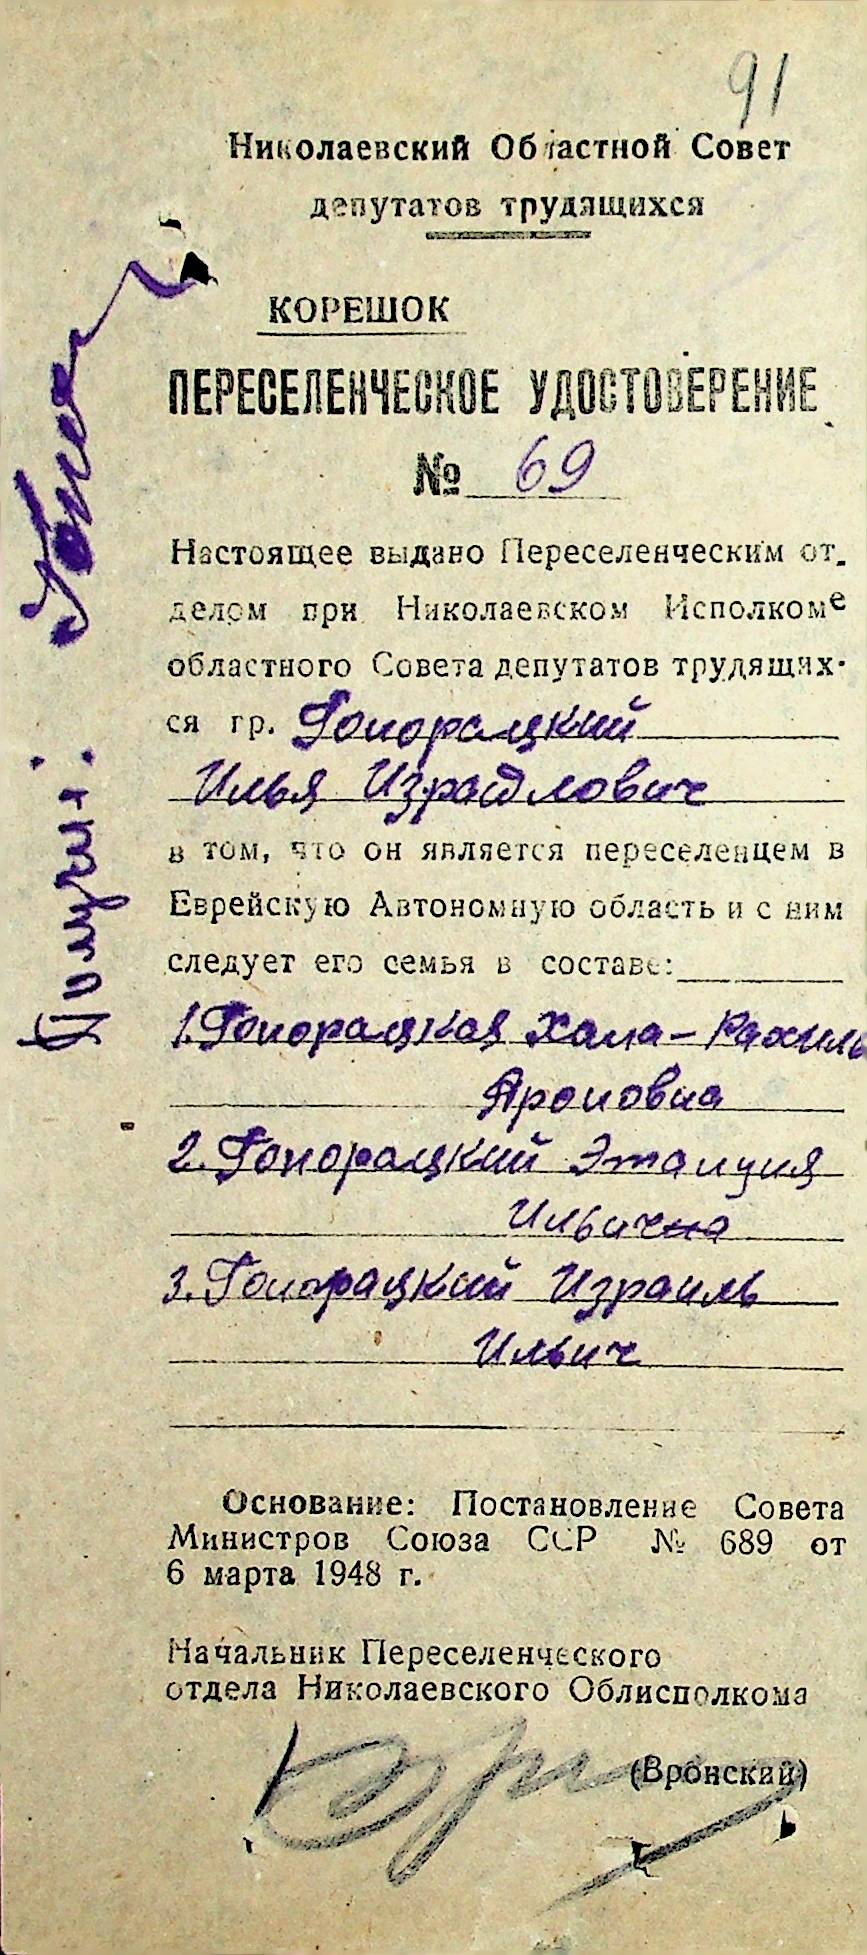 91
Николаевский Областной Совет
депутатов трудящихся
КОРЕШОК
ПЕРЕСЕЛЕНЧЕСКОЕ УДОСТОВЕРЕНИЕ
№ 69
Настоящее выдано Переселенческим от-
делом при Николаевском Исполкоме
областного Совета депутатов трудящих-
ся гр. Гонорацкий
Илья Израйлович
в том, что он является переселенцем в
Еврейскую Автономную область и с ним
следует его семья в составе:
1. Гонорацкая Хана-Рахиль
Ароновна
2. Гонорацкий
Ильична
3. Гонорацкий Израиль
Ильич
Основание: Постановление Совета
Министров Союза ССР № 689 от
6 марта 1948 г.
Начальник Переселенческого
отдела Николаевского Облисполкома
(Вронский)
Получил: